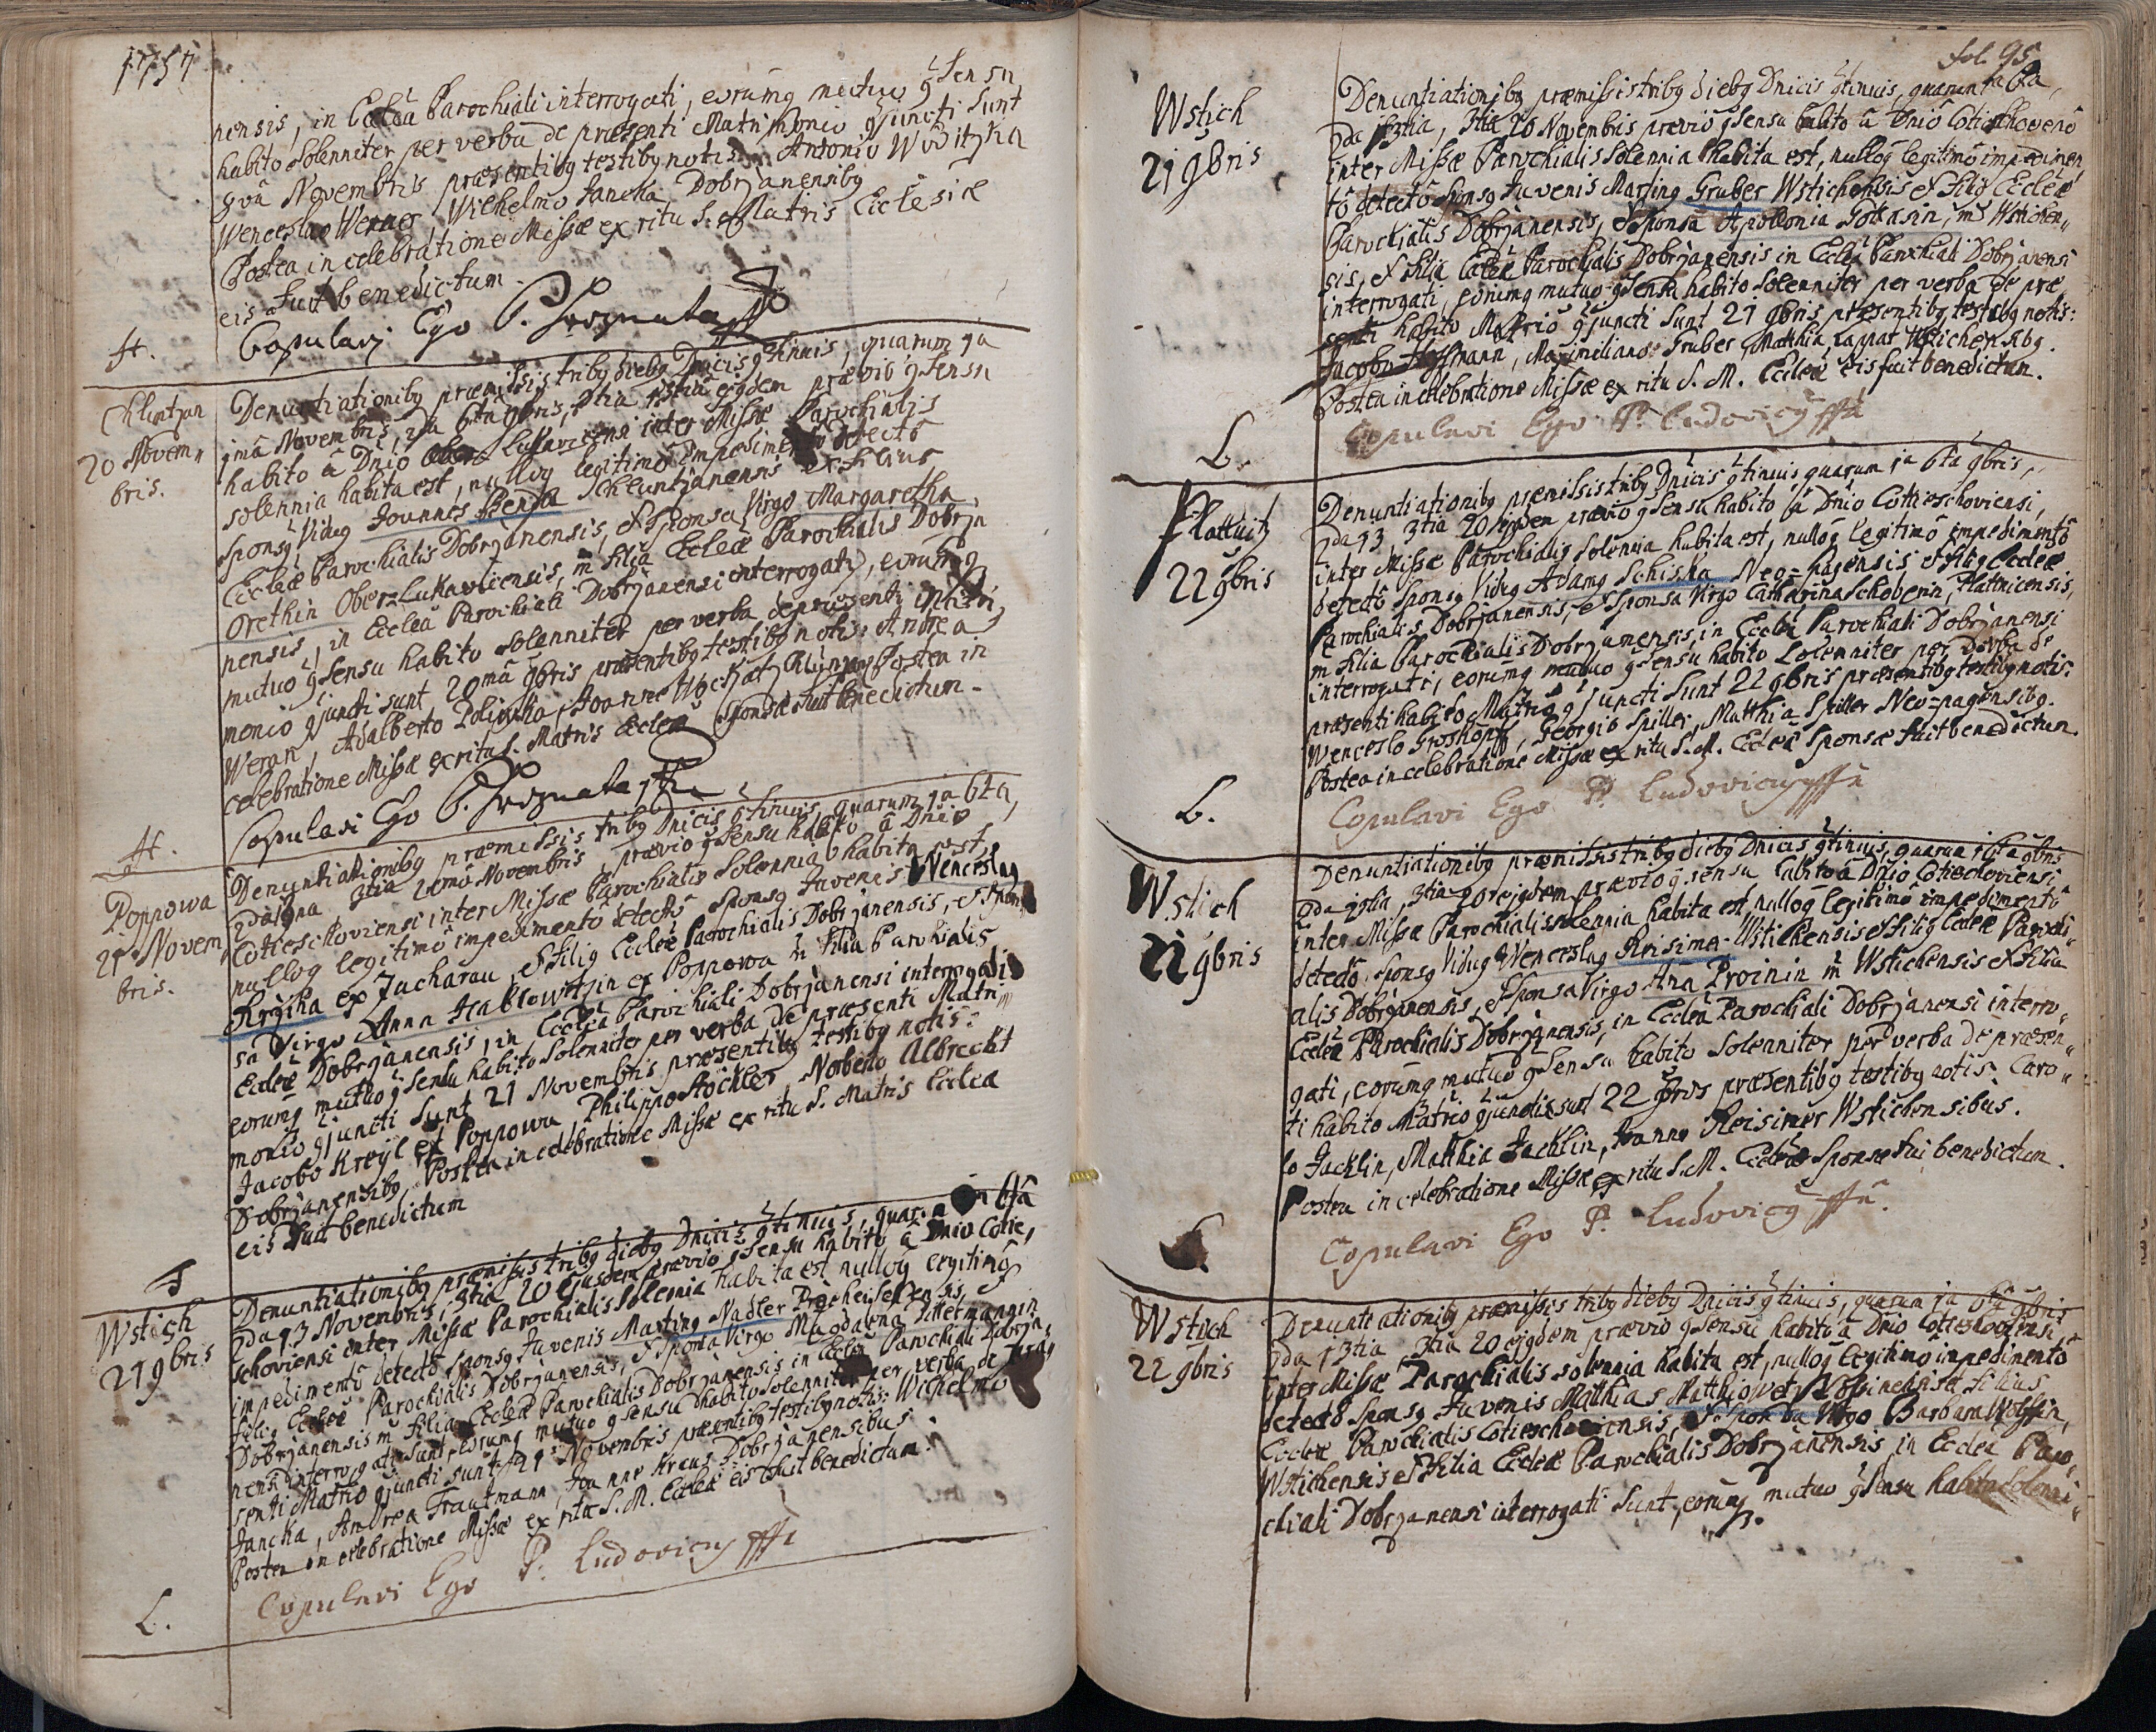 1757
nensis, in Ecclâ Parochiali interrogati, eorumq mutuo 9sensu
habito Solenniter per verba de præsenti Matrimonio 9juncti Sunt
Novembris præsentibg testibg notis: Antonio Woditzka
Wenceslao Werner Wilhelmo Jancka Dobrzanensibg
Postea in celebratione Missæ ex ritu S. Matris Ecclesiæ
eis fuit benedictum
Copulavi Ego P.
H.
Chluntzan
20 Novem
bris.
Denuntiationibg præmissis tribg diebg Dnicis 9tinuis, quarum 1a
Novembris, 2da
habito â Dnio Ober Lukaviciensi inter Missæ Parochialis
solennia habita est, nullog legitimô impedimento detectô
Sponsg Vidug Joannes Benda Chluntzanensis et Filius
Eccleæ Parochialis Dobrzanensis, et Sponsa Virgo Margaretha
Orethin Ober=Lukaviciensis, Filia Eccleæ Parochialis Dobrza
nensis, in Eccleâ Parochiali Dobrzanensi interrogati, eorumq
mutuô 9sensu habito solenniter per verba de præsenti Matri
monio 9juncti sunt 20mâ 9bris præsentibg testibg notis: Andrea
Weran, Adalberto Poliwka, Joanne Postea in
celebratione Missæ ex ritu S. Matris Eccleæ Sponsæ fuit benedictum.
Copulavi Ego P.
H.
Poppowa
21 Novem
bris.
Denuntiationibg præmissis tribg Dnicis 9tinuis, quarum 1a 6ta,
2da 3tia 20mô Novembris prævio 9sensu habito â Dnio
Cotieschoviensi inter Missæ Parochialis Solennia habita est,
nullog legitimô impedimentô detectô Sponsg Juvenis Wenceslag
ex Zucharau, et Filig Eccleæ Parochialis Dobrzanensis, et Spon
sa Virgo Anna Hablowetzin ex Poppowa Filia Parochialis
Eccleæ Dobrzanensis, in Eccleâ Parochiali Dobrzanensi interrogati
eorumq mutuo 9sensu habito Solenniter per verba de præsenti Matri
monio 9juncti Sunt 21 Novembris præsentibg testibg notis:
Jacobo Kreyl ex Poppowa Philippo Stöckler, Norberto Albrecht
Dobrzanensibg. Postea in celebratione Missæ ex ritu S. Matris Eccleæ
eis fuit benedictum
Wstich
21 9bris
Denuntiationibg præmissis tribg diebg Dnicis 9tinuis, quarum 6ta
2da 13 Novembris, 3tia 20 Ejusdem prævio 9sensu habito â Dnio Cotie,
schoviensi inter Missæ Parochialis Solennia habita est nullog legitimô
impedimentô detectô, Sponsg Juvenis Marting Nadler
Filig Eccleæ Parochialis Dobrzanensis, et Sponsa Virgo Magdalena Dittermannin
Dobrzanensis Filia Eccleæ Parochialis Dobrzanensis in Eccleâ Parochiali Dobrza,
nensi interrogati Sunt, eorumq mutuo 9sensu habito Solenniter per verba de præ
senti Matrio 9juncti sunt 21 Novembris præsentibg testibg notis: Wilhelmo
Jancka, Andrea Trautmann, Joanne Kraus Dobrzanensibus
Postea in celebratione Missæ ex ritu S. M. Eccleæ eis fuit benedictum.
Copulavi Ego P. Ludovicus
L.
fol. 95
Wstich
21 9bris
Denuntiationibg præmissis tribg diebg Dnicis 9tinuis, quarum 1a 6ta,
2da 13tia, 3tia 20 Novembris prævio 9sensu habito â Dnio Cotieschoviens
inter Missæ Parochialis Solennia habita est, nullog legitimô impedimen
tô detectô Sponsg Juvenis Marting Gruber Wstichensis et Filig Eccleæ
Parochialis Dobrzanensis, et Sponsa Apollonia Wstichen,,
sis, et Filia Eccleæ Parochialis Dobrzanensis in Eccleâ Parochiali Dobrzanensi
interrogati, eorumq mutuo 9sensu habito Solenniter per verba de præ
senti habito Matrio 9juncti Sunt 21 9bris præsentibg testibg notis:
Jacobo Hoffmann, Maximiliano Gruber, Matthia Wstichensibg.
Postea in celebratione Missæ ex ritu S. M. Eccleæ eis fuit benedictum.
Copulavi Ego P. Ludovicg
L.
Plattnitz
22 9bris
Denuntiationibg præmissis tribg Dnicis 9tinuis quarum 1a 6ta 9bris,
2da 13, 3tia 20 ejgdem prævio 9sensu habito â Dnio Cottieschoviensi,
inter Missæ Parochialis Solennia habita est, nullog legitimô impedimentô
detectô Sponsg Vidug Adamg Schiska Neo=pagensis et Filig Eccleæ
Parochialis Dobrzanensis, et Sponsa Virgo Catharina Schoberin, Platnicensis,
Filia Parochialis Dobrzanensis, in Eccleâ Parochiali Dobrzanensi
interrogati, eorumq mutuo 9sensu habito Solenniter per verba de
præsenti habito Matrio 9juncti Sunt 22 9bris præsentibg testibg notis:
Wenceslo Groskopff, Georgio Spiller, Matthia Spiller Neo=pagensibg.
Postea in celebratione Missæ ex ritu S. M. Eccleæ Sponsæ fuit benedictum.
Copulavi Ego P. Ludovicus
L.
Wstich
22 9bris
Denuntiationibg præmissis tribg diebg Dnicis 9tinuis, quarum 1a 6ta 9bris
2da 13tia, 3tia 20 ejgdem prævio 9sensu habito â Dnio Cotieschoviensi
inter Missæ Parochialis solennia habita est, nullog legitimô impedimentô
detectô, Sponsg Vidug Wenceslag Reisimer Wstichensis et Filig Eccleæ Parochi,,
alis Dobrzanensis, et Sponsa Virgo Ana Proinin Wstichensis et Filia
Eccleæ Parochialis Dobrzanensis, in Eccleâ Parochiali Dobrzanensi interro,,
gati, eorumq mutuo 9sensu habito Solenniter per verba de præsen,,
ti habito Matrio 9juncti sunt 22 9bris præsentibg testibg notis: Caro,,
lo Jacklin, Matthia Jacklin, Joanne Reisimer Wstichensibus.
Postea in celebratione Missæ ex ritu S. M. Eccleæ Sponsæ fui benedictum.
Copulavi Ego P. Ludovicg
Wstich
22 9bris
Denuntiationibg præmissis tribg diebg Dnicis 9tinuis, quarum 1a 6ta 9bris
2da 13tia, 3tia 20 ejgdem prævio 9sensu habito â Dnio Cotieschoviensi,
inter Missæ Parochialis solennia habita est, nullog legitimô impedimentô
detectô Sponsg Juvenis Matthias Filius
Eccleæ Parochialis Cotieschoviensis, et Sponsa Virgo Barbara Wolffin,
Wstichensis et Filia Eccleæ Parochialis Dobrzanensis, in Eccleâ Paro,
chiali Dobrzanensi interrogati Sunt, eorumq mutuo 9sensu habito Solenni,,